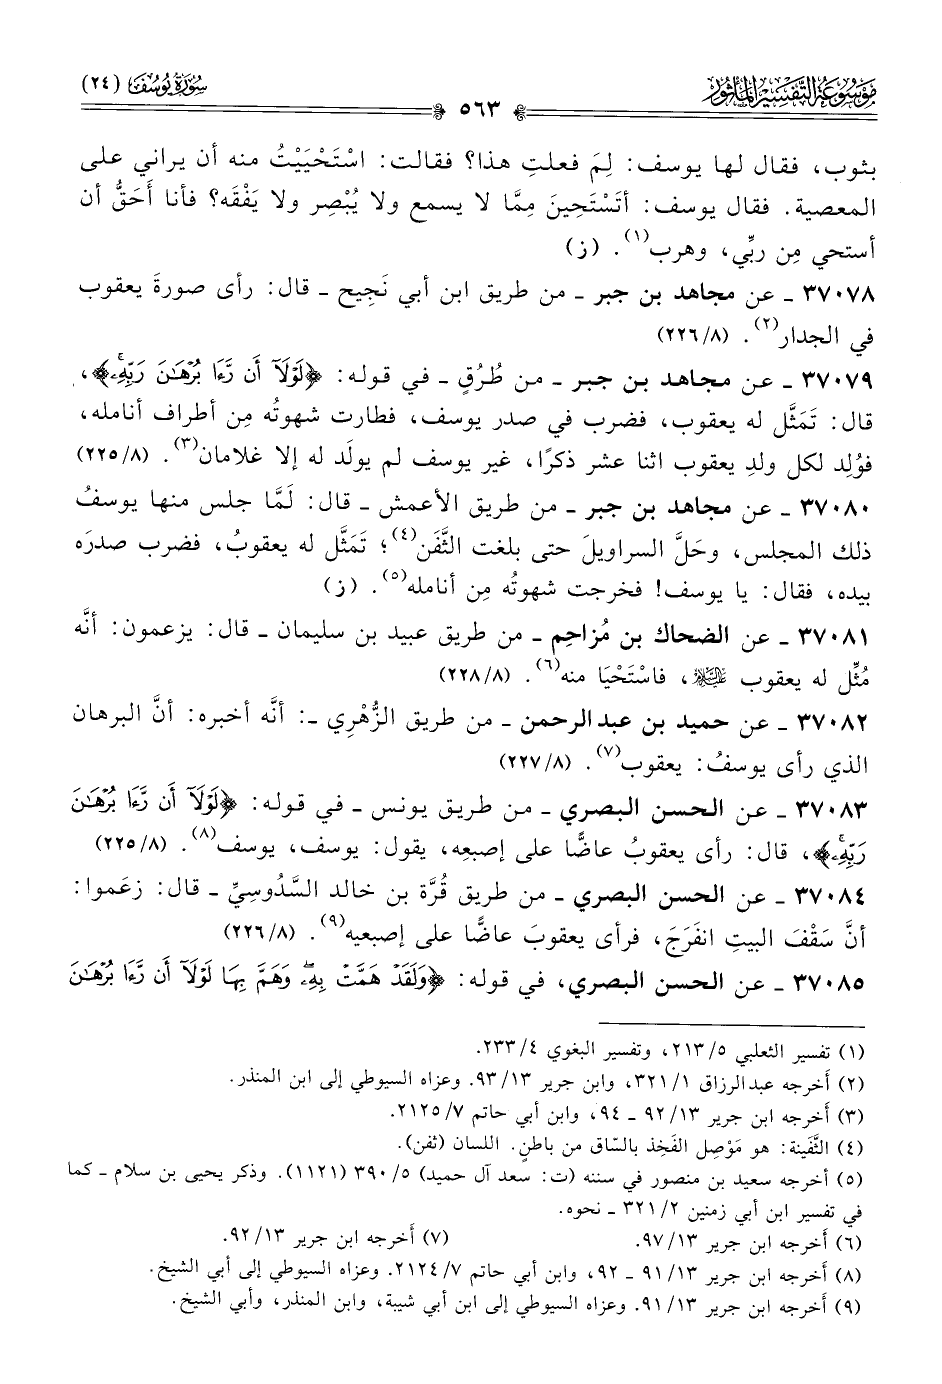 مَوْسُوعَةُ التَّفْسِيْرِ المَأْثُورِ
سُورَةُ يُوسُفَ (٢٤)
٥٦٣
بثوب، فقال لها يوسف: لِمَ فعلتِ هذا؟ فقالت: اسْتَحْيَيْتُ منه أن يراني على
المعصية. فقال يوسف: أتَسْتَحِينَ مِمَّا لا يسمع ولا يُبْصِر ولا يَفْقَه؟ فأنا أَحَقُّ أن
أستحي مِن ربِّي، وهرب(١). (ز)
٣٧٠٧٨ ـ عن مجاهد بن جبر ـ من طريق ابن أبي نَجِيح ـ قال: رأى صورةَ يعقوب
في الجدار(٢). (٢٢٦/٨)
٣٧٠٧٩ ـ عن مجاهد بن جبر ـ من طُرُقٍ ـ في قوله: ﴿لَوْلَآ أَن رَّءَا بُرْهَـٰنَ رَبِّهِۦۚ﴾،
قال: تَمَثَّل له يعقوب، فضرب في صدر يوسف، فطارت شهوتُه مِن أطراف أنامله،
فوُلِد لكل ولدِ يعقوب اثنا عشر ذكرًا، غير يوسف لم يولَد له إلا غلامان(٣). (٢٢٥/٨)
٣٧٠٨٠ ـ عن مجاهد بن جبر ـ من طريق الأعمش ـ قال: لَمَّا جلس منها يوسفُ
ذلك المجلس، وحَلَّ السراويلَ حتى بلغت الثَّفَن(٤)؛ تَمَثَّل له يعقوبُ، فضرب صدرَه
بيده، فقال: يا يوسف! فخرجت شهوتُه مِن أنامله(٥). (ز)
٣٧٠٨١ ـ عن الضحاك بن مُزاحِم ـ من طريق عبيد بن سليمان ـ قال: يزعمون: أنَّه
مُثِّل له يعقوب عليه السلام، فاسْتَحْيَا منه(٦). (٢٢٨/٨)
٣٧٠٨٢ ـ عن حميد بن عبد الرحمن ـ من طريق الزُّهْرِي ـ: أنَّه أخبره: أنَّ البرهان
الذي رأى يوسفُ: يعقوب(٧). (٢٢٧/٨)
٣٧٠٨٣ ـ عن الحسن البصري ـ من طريق يونس ـ في قوله: ﴿لَوْلَآ أَن رَّءَا بُرْهَـٰنَ
رَبِّهِۦۚ﴾، قال: رأى يعقوبُ عاضًّا على إصبعِه، يقول: يوسف، يوسف(٨). (٢٢٥/٨)
٣٧٠٨٤ ـ عن الحسن البصري ـ من طريق قُرَّة بن خالد السَّدُوسِيِّ ـ قال: زعَموا:
أنَّ سَقْفَ البيتِ انفَرَجَ، فرأى يعقوبَ عاضًّا على إصبعيه(٩). (٢٢٦/٨)
٣٧٠٨٥ ـ عن الحسن البصري، في قوله: ﴿وَلَقَدْ هَمَّتْ بِهِۦۖ وَهَمَّ بِهَا لَوْلَآ أَن رَّءَا بُرْهَـٰنَ
(١) تفسير الثعلبي ٢١٣/٥، وتفسير البغوي ٢٣٣/٤.
(٢) أخرجه عبدالرزاق ٣٢١/١، وابن جرير ٩٣/١٣. وعزاه السيوطي إلى ابن المنذر.
(٣) أخرجه ابن جرير ٩٢/١٣ ـ ٩٤، وابن أبي حاتم ٢١٢٥/٧.
(٤) الثَّفِينة: هو مَوْصِل الفَخِذ بالسَّاق من باطنٍ. اللسان (ثفن).
(٥) أخرجه سعيد بن منصور في سننه (ت: سعد آل حميد) ٣٩٠/٥ (١١٢١). وذكر يحيى بن سلام ـ كما
في تفسير ابن أبي زمنين ٣٢١/٢ ـ نحوه.
(٦) أخرجه ابن جرير ٩٧/١٣. (٧) أخرجه ابن جرير ٩٢/١٣.
(٨) أخرجه ابن جرير ٩١/١٣ ـ ٩٢، وابن أبي حاتم ٢١٢٤/٧. وعزاه السيوطي إلى أبي الشيخ.
(٩) أخرجه ابن جرير ٩١/١٣. وعزاه السيوطي إلى ابن أبي شيبة، وابن المنذر، وأبي الشيخ.